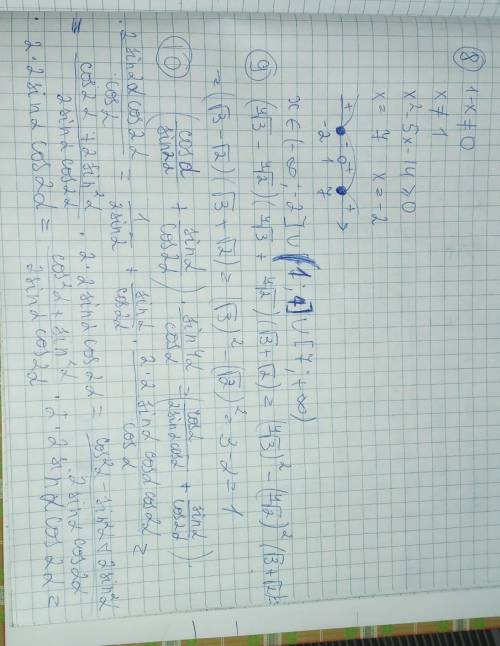 ⑧ 1-x≠0
x≠1
x²-5x-14≥0
x=7 x=-2
+ - + 
-2 1 7
x∈(-∞;-2]∪[7;+∞)
⑨ (∜3-∜2)(∜3+∜2)(√3+√2)=((∜3)²-(∜2)²(√3+√2)=
=(√3-√2)(√3+√2)=(√3)²-(√2)²=3-2=1
⑩ (cosα/sin2α + sinα/cos2α)·sin4α/cosα=(cosα/2sinαcosα + sinα/cos2α)·
·2sin2αcos2α/cosα = 1/2sinα + sinα/cos2α · 2·2sinαcosαcos2α/cosα =
= cos2α+2sin²α/2sinαcos2α · 2·2sinαcos2α = cos²α-sin²α+2sin²α/2sinαcos2α
·2·2sinαcos2α = cos²α+sin²α/2sinαcos2α ·2·2sinαcos2α=